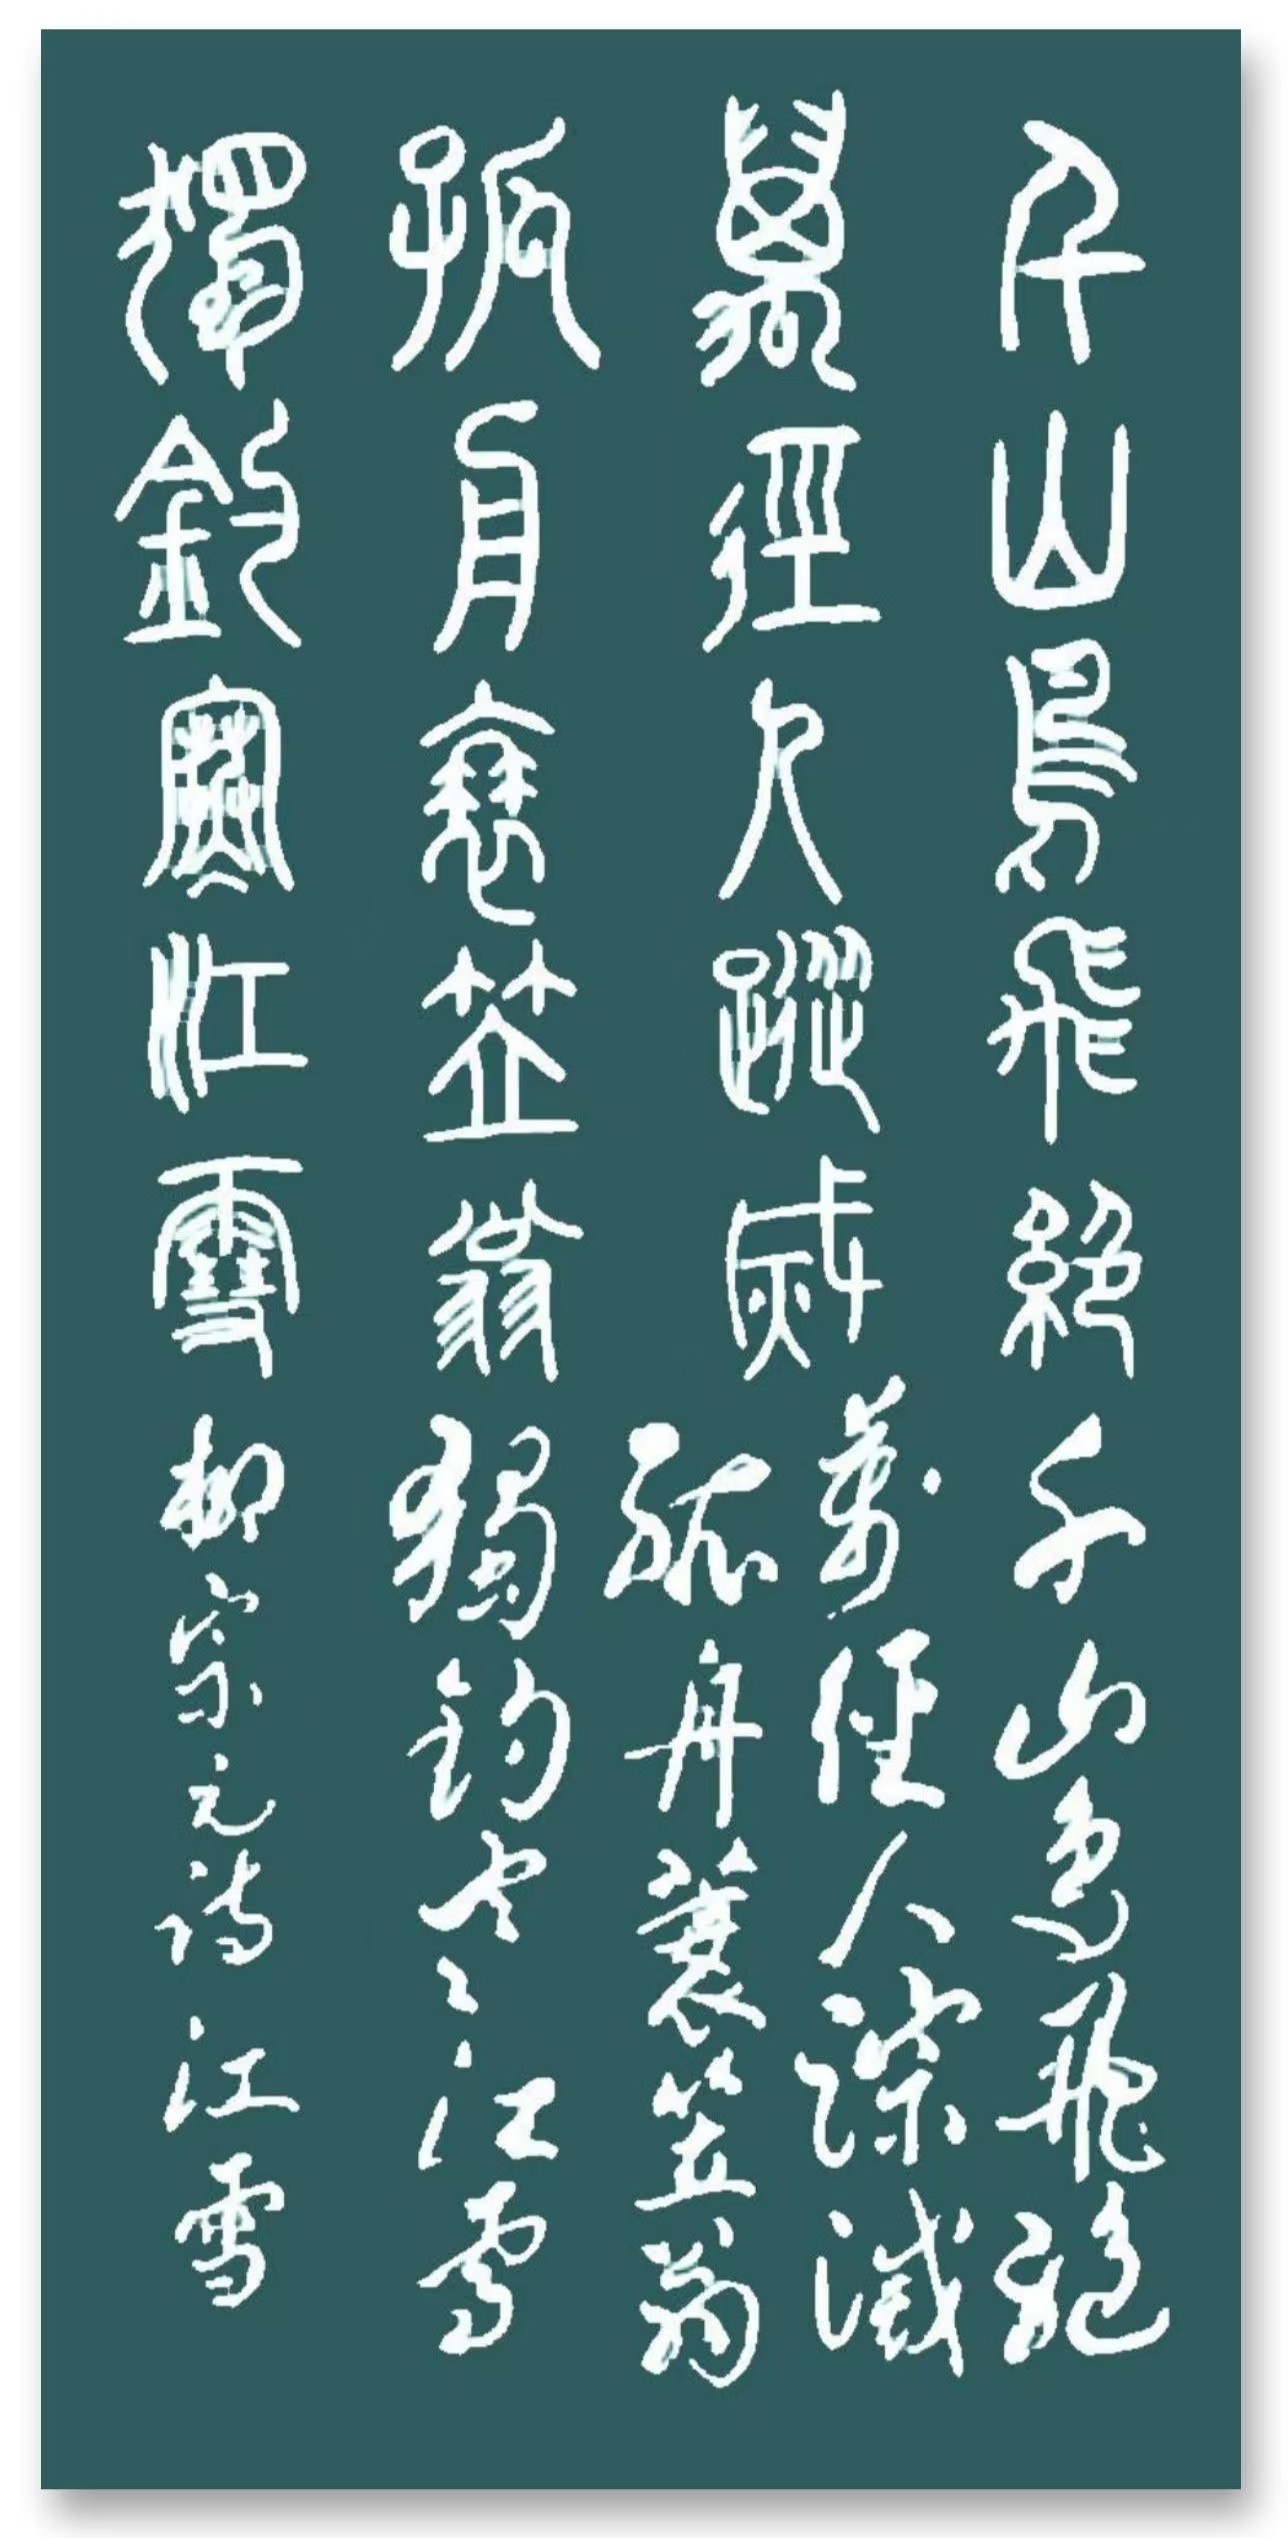 千山鳥飛絕
萬徑人蹤烕
孤舟蓑笠翁
獨釣寒江雪
千山鳥飛絕
萬徑人踪滅
孤舟蓑笠翁
獨釣寒江雪
柳宗元詩江雪